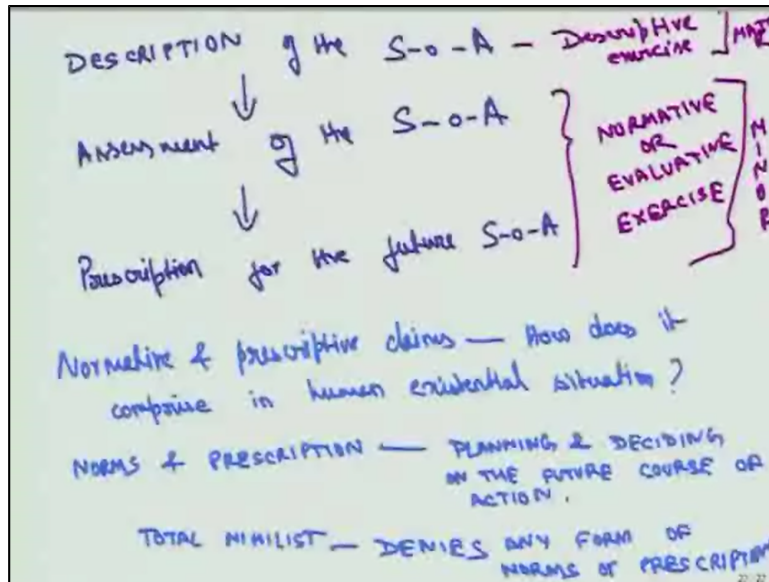 DESCRIPTION of the S-o-A - Descriptive exercise ] MAJ
↓
Assessment of the S-o-A
↓
Prescription for the future S-o-A
} NORMATIVE
OR
EVALUATIVE
EXERCISE
] MINOR
Normative & prescriptive claims — How does it
comprise in human existential situation?
NORMS & PRESCRIPTION — PLANNING & DECIDING
ON THE FUTURE COURSE OF
ACTION.
TOTAL NIHILIST — DENIES ANY FORM OF
NORMS OR PRESCRIPTION